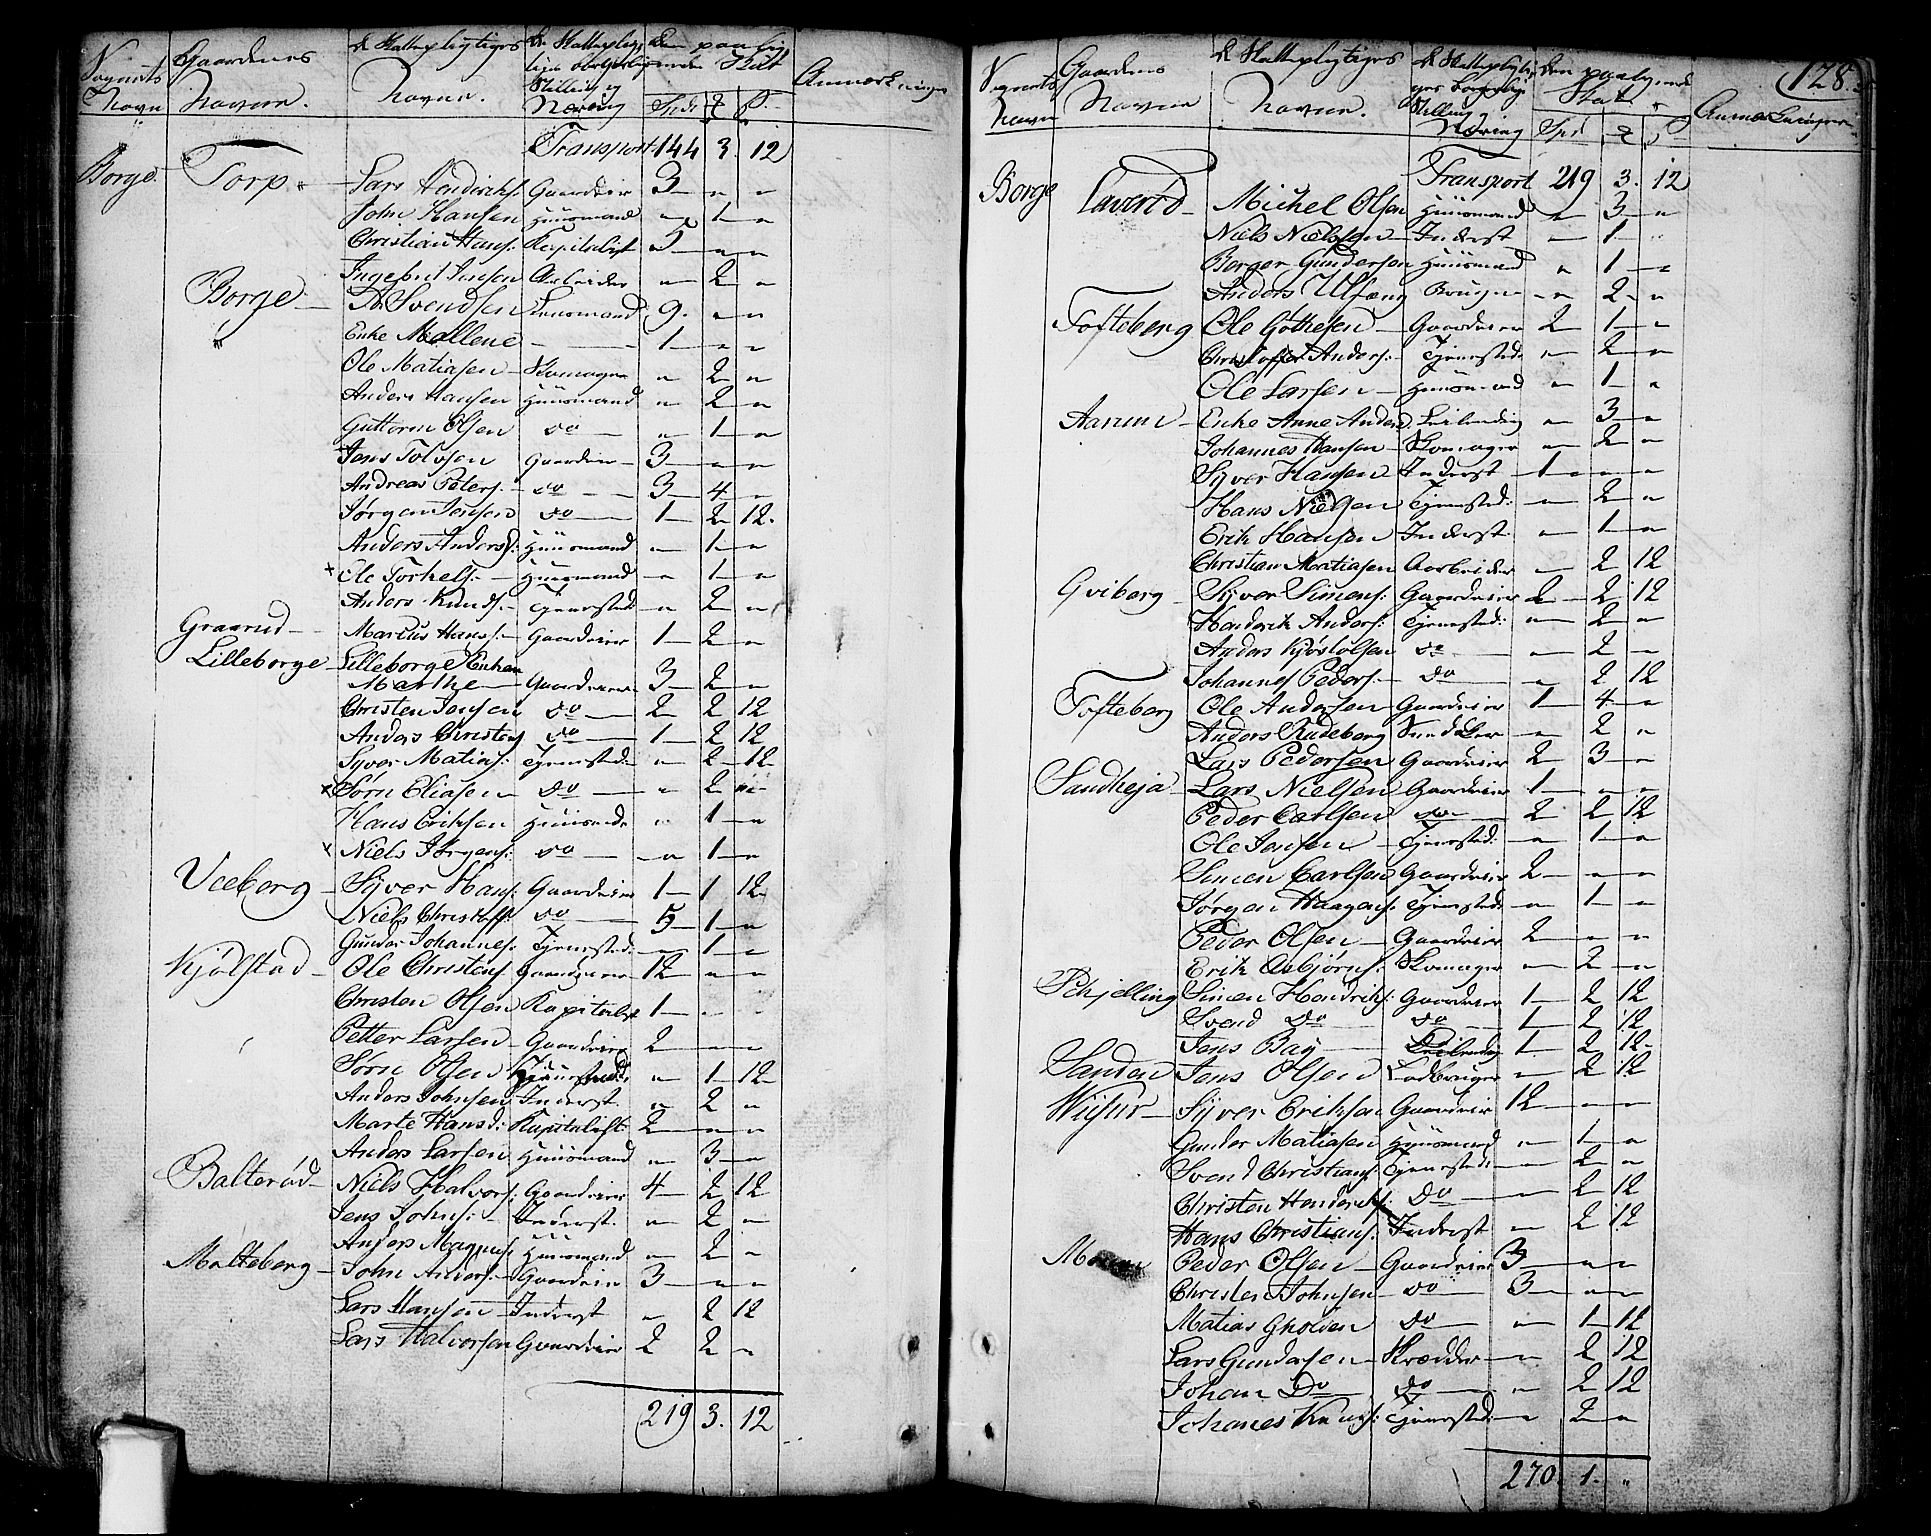 Sognets Gaardenes de Skattepligtiges De Skattepligtiges borgerlige Den paalignede Skat Anmærkninger
Navn Navne. Navne. Stilling og Næring Spd. ß
Transport 144 3. 12
Borge Torp Lars Hendrichs. Gaardeier 3 " "
John Hansen Huusmand " 1 "
Christian Hans. Kapitalist 5 " "
Ingebret Jensen Arbeider " 2 "
Borge Svendsen Lensmand 9. " "
Enke Mallene 1 " "
Ole Matiasen Skomager " 2 "
Anders Hansen Huusmand " 2 "
Guttorm Olsen do " 1 "
Jens Tolvsen Gaardeier 3 " "
Andreas Peters. do 3 4 "
Jørgen Jensen do 1 2 12.
Anders Anders. Huusmand " 1 "
+ Ole Torkels. Huusmand " 1 "
Anders Knuds. Tjenerstd. " 2 "
Graarud Marcus Hans. Gaardeier 1 2 "
Lilleborge Lilleborge Enken
Marthe Gaardeier 3 2 "
Christen Jensen do 2 2 12
Anders Christens. do 1 2 12
Syver Matias. Tjenerstd. " 2 12
x Sørn Eliasen do " 2 "
Hans Eriksen Huusmd. " 1 "
x Niels Jørgens. do " 1 "
Veeberg Syver Hans. Gaardeier 1 1 12
Niels Christoff. do 5 1 "
Gunder Johannes. Tjenersted. " 1 "
Kjølstad Ole Christens. Gaardeier 12 " "
Christen Olsen Kapitalist 1 " "
Petter Larsen Gaardeier 2 " "
Sørn Olsen " 1 12
Anders Johnsen Inderst " 2 "
Marte Hansd. Kapitalist 2 " "
Anders Larsen Huusmand " 3 "
Balterød Niels Halvors. Gaardeier 4 2 12
Jens Johns. Inderst. " 2 "
Anders Magnus. Huusmand " 2 "
Molteberg John Anders. Gaardeier 3 " "
Lars Hansen Inderst " 2 12
Lars Halvorsen Gaardeier 2 2 "
219 3. 12
128.
Sognets Gaardens de Skattepligtiges de Skattepligtiges borgerlige Den paalignede Skat. Anmærkninger
Navn Navne Navne. Stilling Næring Spd ß
Transport 219 3. 12
Borge Laverød Michel Olsen Huusmand " 3 "
Niels Nielssen Inderst " 1 "
Borger Gundersen Huusmand " 1 "
Anders Ulfeng Bruger " 2 "
Tofteberg Ole Gøthesen Gaardeier 2 1 "
Christoffer Anders. Tjenersted. " 2 "
Ole Larsen Huusmand " 1 "
Aarum Enke Anne Andersd. Leilending " 3 "
Johannes Hansen Skomager " 2 "
Syver Hansen Inderst 1 " "
Hans Nielsen Tjenersted. " 2 "
Erik Hansen Inderst " 1 "
Christian Matiasen Aarbeider " 2 12
Gviberg Syver Simens. Gaardeier 2 2 12
Henderik Anders. Tjenersted. " 2 "
Anders Kjøstolsen do " 2 "
Johannes Peders. do " 2 12
Tofteberg Ole Andersen Gaardeier 1 4 "
Anders Rudeberg " 2 "
Lars Pedersen Gaardeier 2 3 "
Sandheja Lars Nielsen Gaardeier 1 " "
Peder Carlsen do 2 2 12
Ole Jensen Tjenersted. " 1 "
Simen Carlsen Gaardeier 2 " "
Jørgen Haagens. Tjenersted. " 1 "
Peder Olsen Gaardeier 2 " "
Erik Asbjørns. Skomager " 2 "
Schjelling Simen Hendriks. Gaardeier 1 2 12
Svend Do do 1 2 12
Jens Bay Leilending 1 2 12
Sanden Jens Olsen Lodbruger " 2 12
Wiistur Syver Eriksen Gaardeier 12 " "
Gunder Matiasen Huusmand " 1 "
Svend Christians. Tjenersted. " 2 "
Christen Henderiks. do " 2 12
Hans Christians. Inderst " 2 12
Peder Olsen Gaardeier 3 " "
Christen Johnsen do 3 " "
Matias Gholven do " 1 12
Lars Gundersen Skrædder " 2 12
Johan Do do " 2 12
Johanes Knuds. Tjenersted. " 2 "
270. 1. "